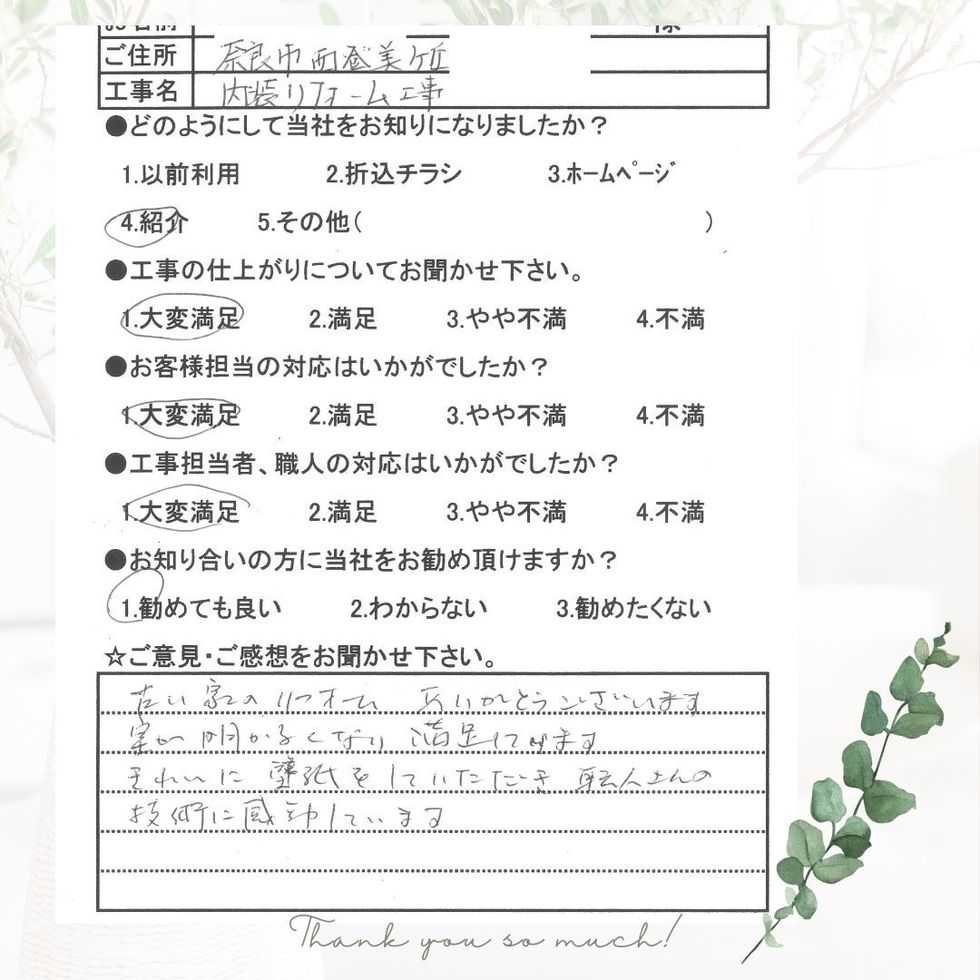 お名前 様
ご住所 奈良市西登美ヶ丘
工事名 内装リフォーム工事
●どのようにして当社をお知りになりましたか？
1.以前利用 2.折込チラシ 3.ﾎｰﾑﾍﾟｰｼﾞ
4.紹介 5.その他( )
●工事の仕上がりについてお聞かせ下さい。
1.大変満足 2.満足 3.やや不満 4.不満
●お客様担当の対応はいかがでしたか？
1.大変満足 2.満足 3.やや不満 4.不満
●工事担当者、職人の対応はいかがでしたか？
1.大変満足 2.満足 3.やや不満 4.不満
●お知り合いの方に当社をお勧め頂けますか？
1.勧めても良い 2.わからない 3.勧めたくない
☆ご意見・ご感想をお聞かせ下さい。
古い家のリフォーム ありがとうございます
室が明かるくなり 満足してます
きれいに壁紙をしていただき 職人さんの
技術に感動しています
Thank you so much!